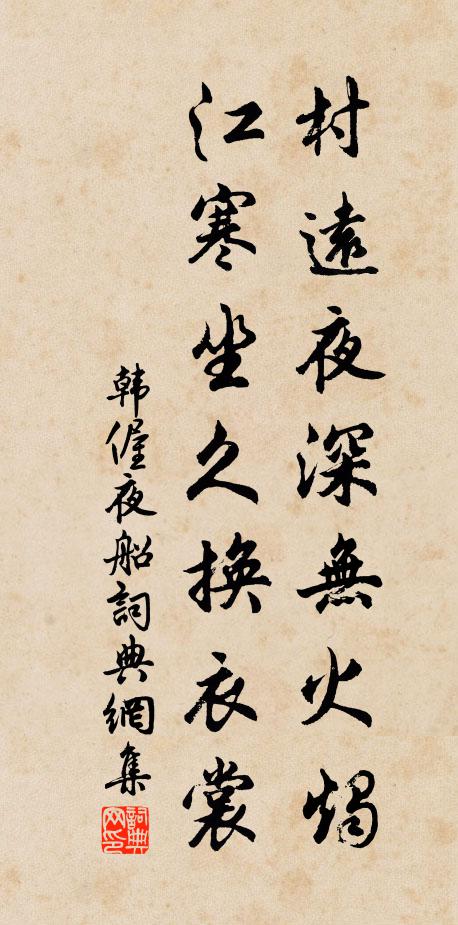 村遠夜深無火燭
江寒坐久換衣裳
韓偓夜船詞典網集
詞典網印